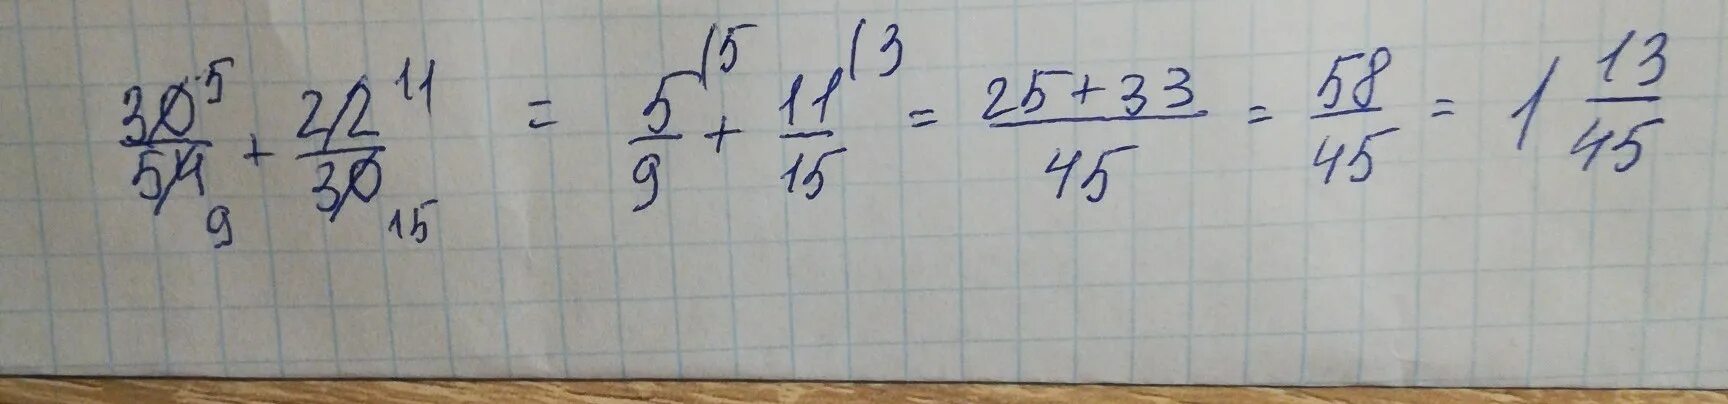 30/54 5 9 + 22/30 11 15 = 5/9 (5 + 11/15 (3 = 25+33/45 = 58/45 = 1 13/45